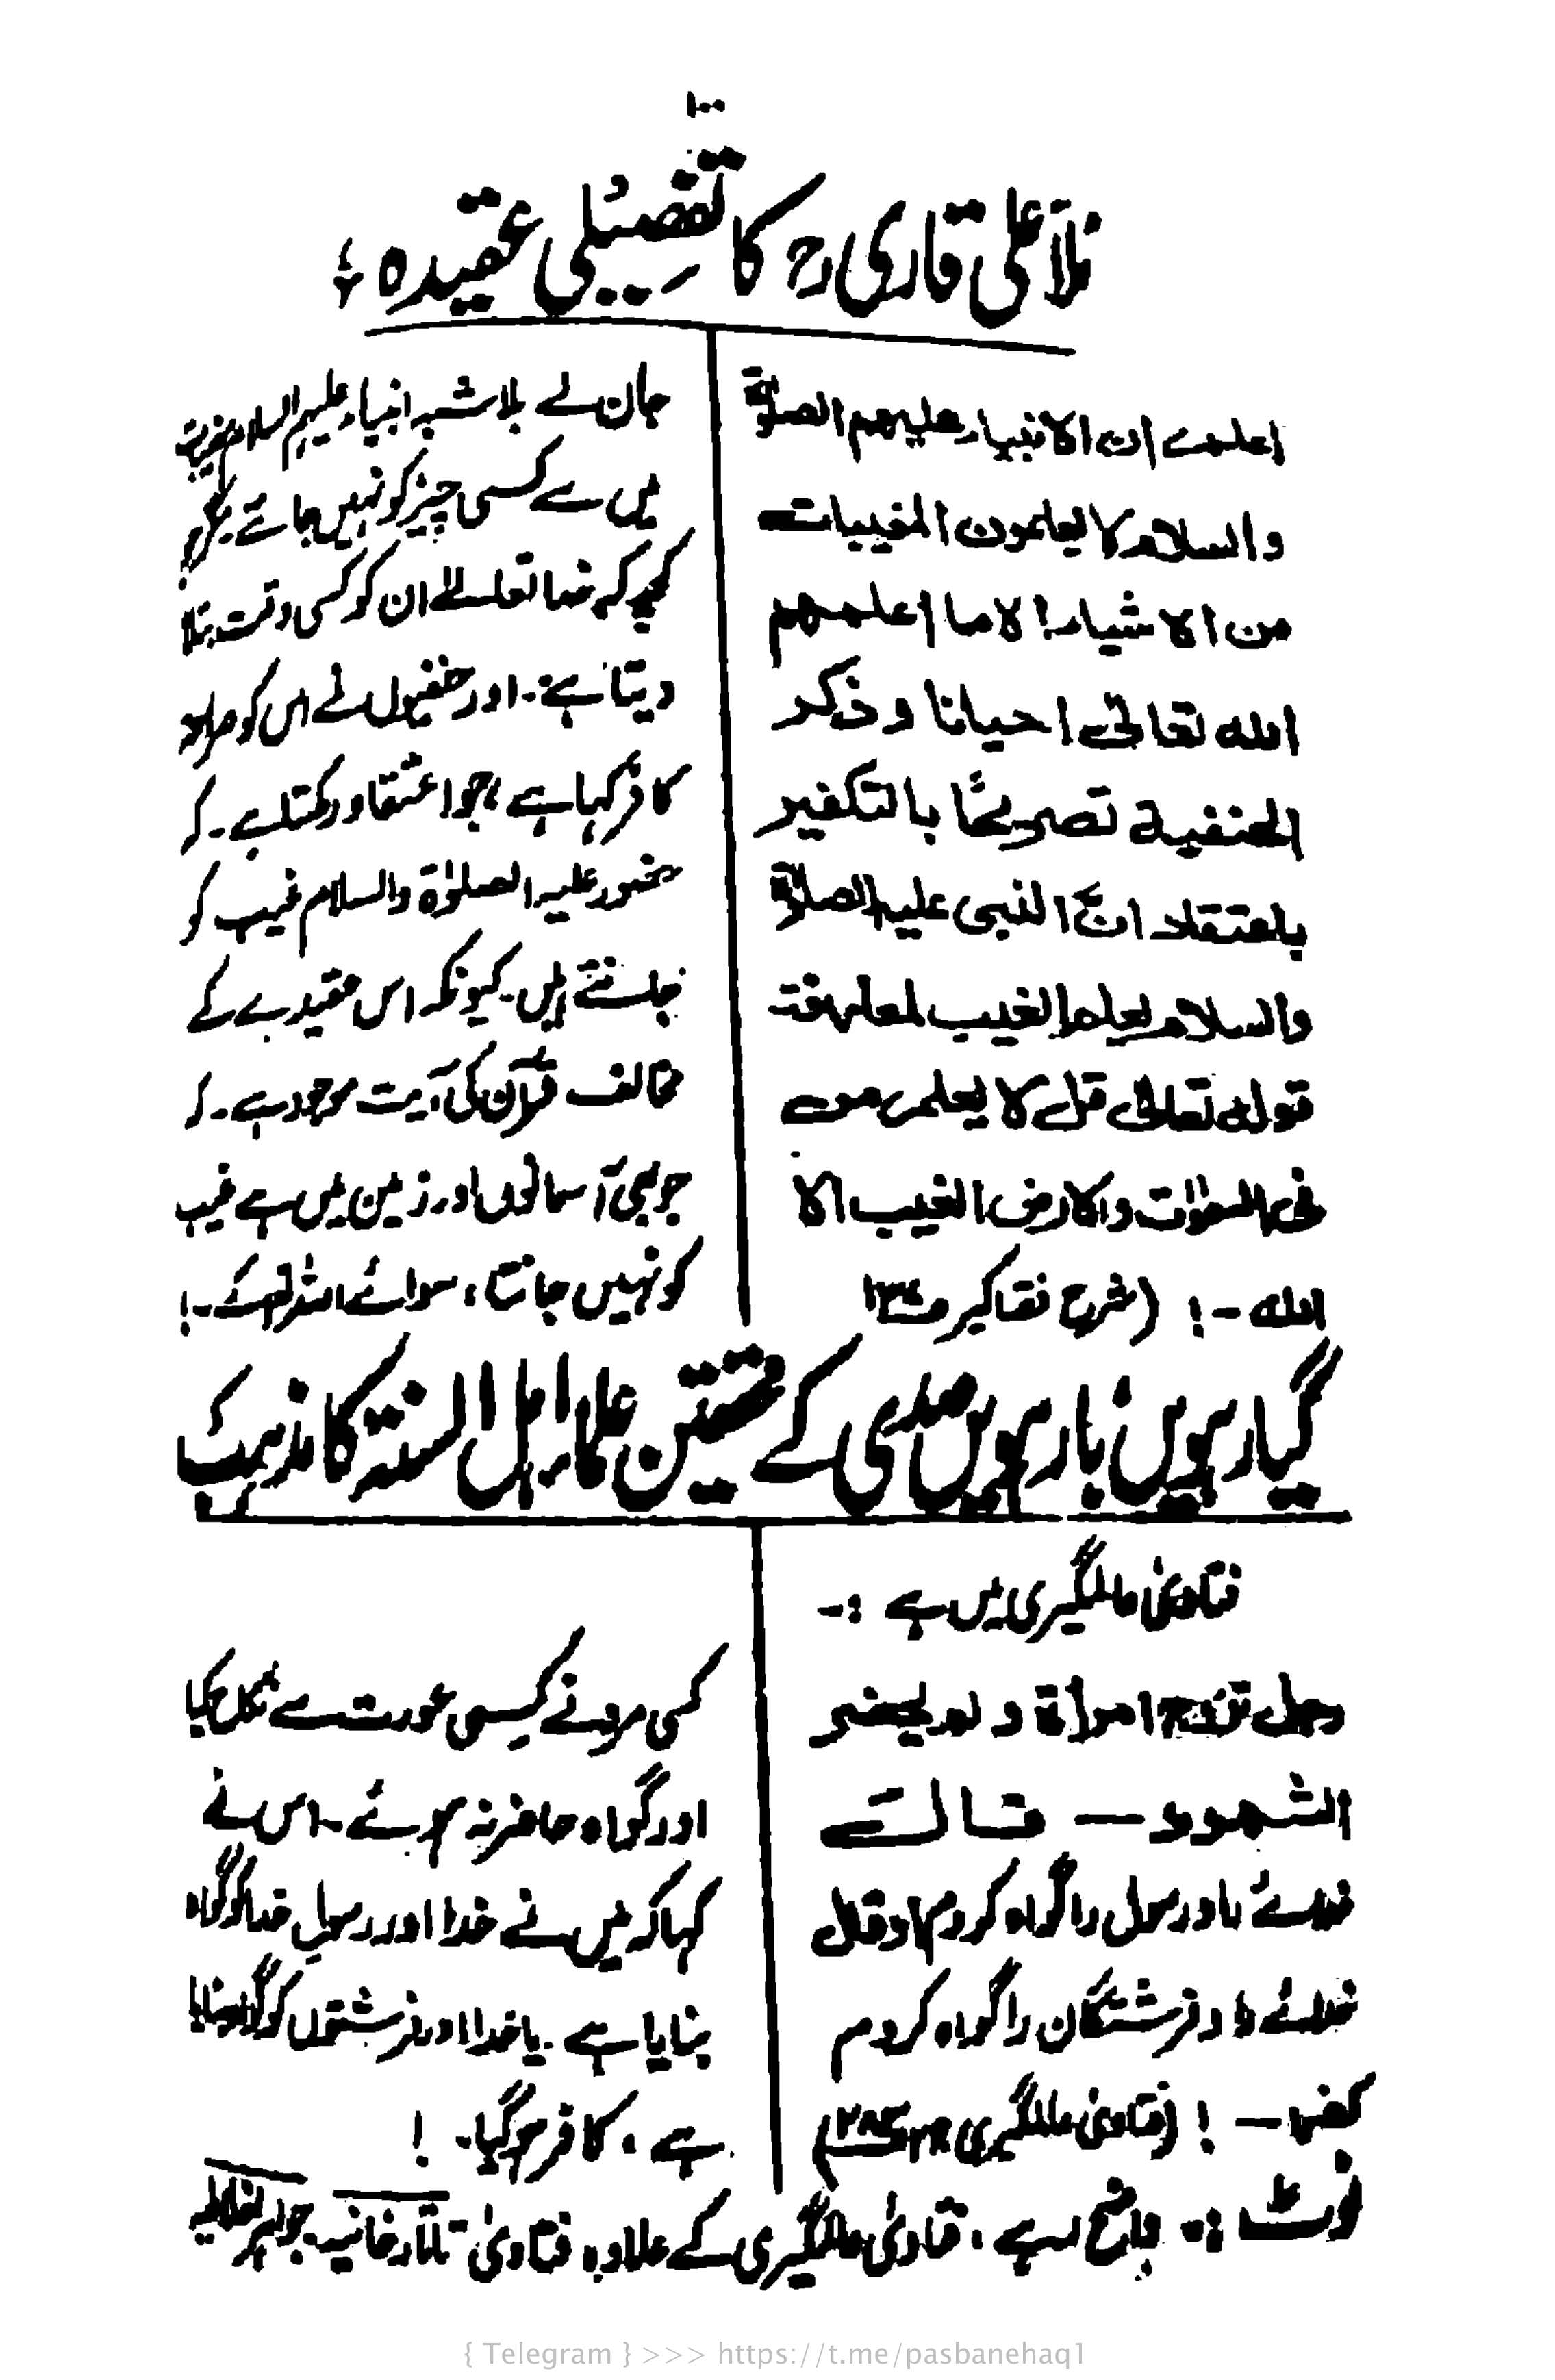 ۱۰۰
ملا علی قاری رح کا تفصیلی عقیدہ
اعلم ان الانبیاء علیہم الصلوٰۃ
والسلام لا یعلمون المغیبات
من الاشیاء الا ما اعلمہم
اللہ تعالیٰ احیانا و ذکر
الحنفیۃ تصریحًا بالتکفیر
باعتقاد انّ النبی علیہ الصلوٰۃ
والسلام یعلم الغیب لمعارضۃ
قولہ تعالیٰ قل لا یعلم من
فی السمٰوٰت والارض الغیب الا
اللہ ۔! (شرح فقہ اکبر
جان لے بلاشبہ انبیاء علیہم السلام
میں سے کسی چیز کو نہیں جانتے مگر
کچھ کہ خدا تعالےٰ ان کو کسی وقت بتلا
دیتا ہے۔ اور حنفیوں نے اس کو
کافر کہا ہے، جو اعتقاد رکھتا ہے۔ کہ
حضور علیہ الصلوٰۃ والسلام غیب کو
جانتے ہیں۔ کیونکہ اس عقیدے کے
مخالف قرآن کی آیت موجود ہے۔ کہ
جو بھی آسمانوں اور زمین میں ہے غیب
کو نہیں جانتا، سوائے اللہ کے۔!
گیارہویں بارہویں صدی کے محققین علماء اہل السنۃ کا مذہب
فتاویٰ عالمگیری میں ہے :۔
رجل تزوج امرأۃ و لم یحضر
الشہود — قالت
خدائے را و رسول را گواہ کردم و قال
خدائے را و فرشتگان را گواہ کردم
کفر — ! (فتاویٰ عالمگیری
کسی مرد نے کسی عورت سے نکاح کیا
اور گواہ حاضر نہ ہوئے۔ اس نے
کہا کہ میں نے خدا اور رسولِ خدا کو گواہ
بنایا ہے۔ یا خدا اور فرشتوں کو گواہ بنایا
ہے، کافر ہو گیا۔ !
نوٹ :۔ واضح رہے، فتاویٰ عالمگیری کے علاوہ فتاویٰ تاتارخانیہ، جواہر
{ Telegram } >>> https://t.me/pasbanehaq1